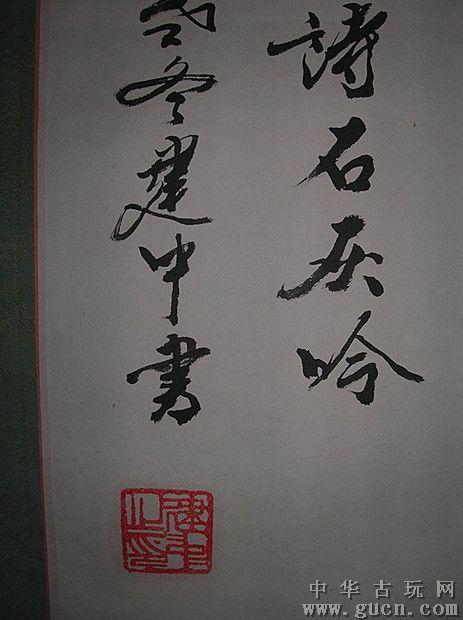 詩石灰吟
冬建中書
建中之印
中华古玩网
www.gucn.com